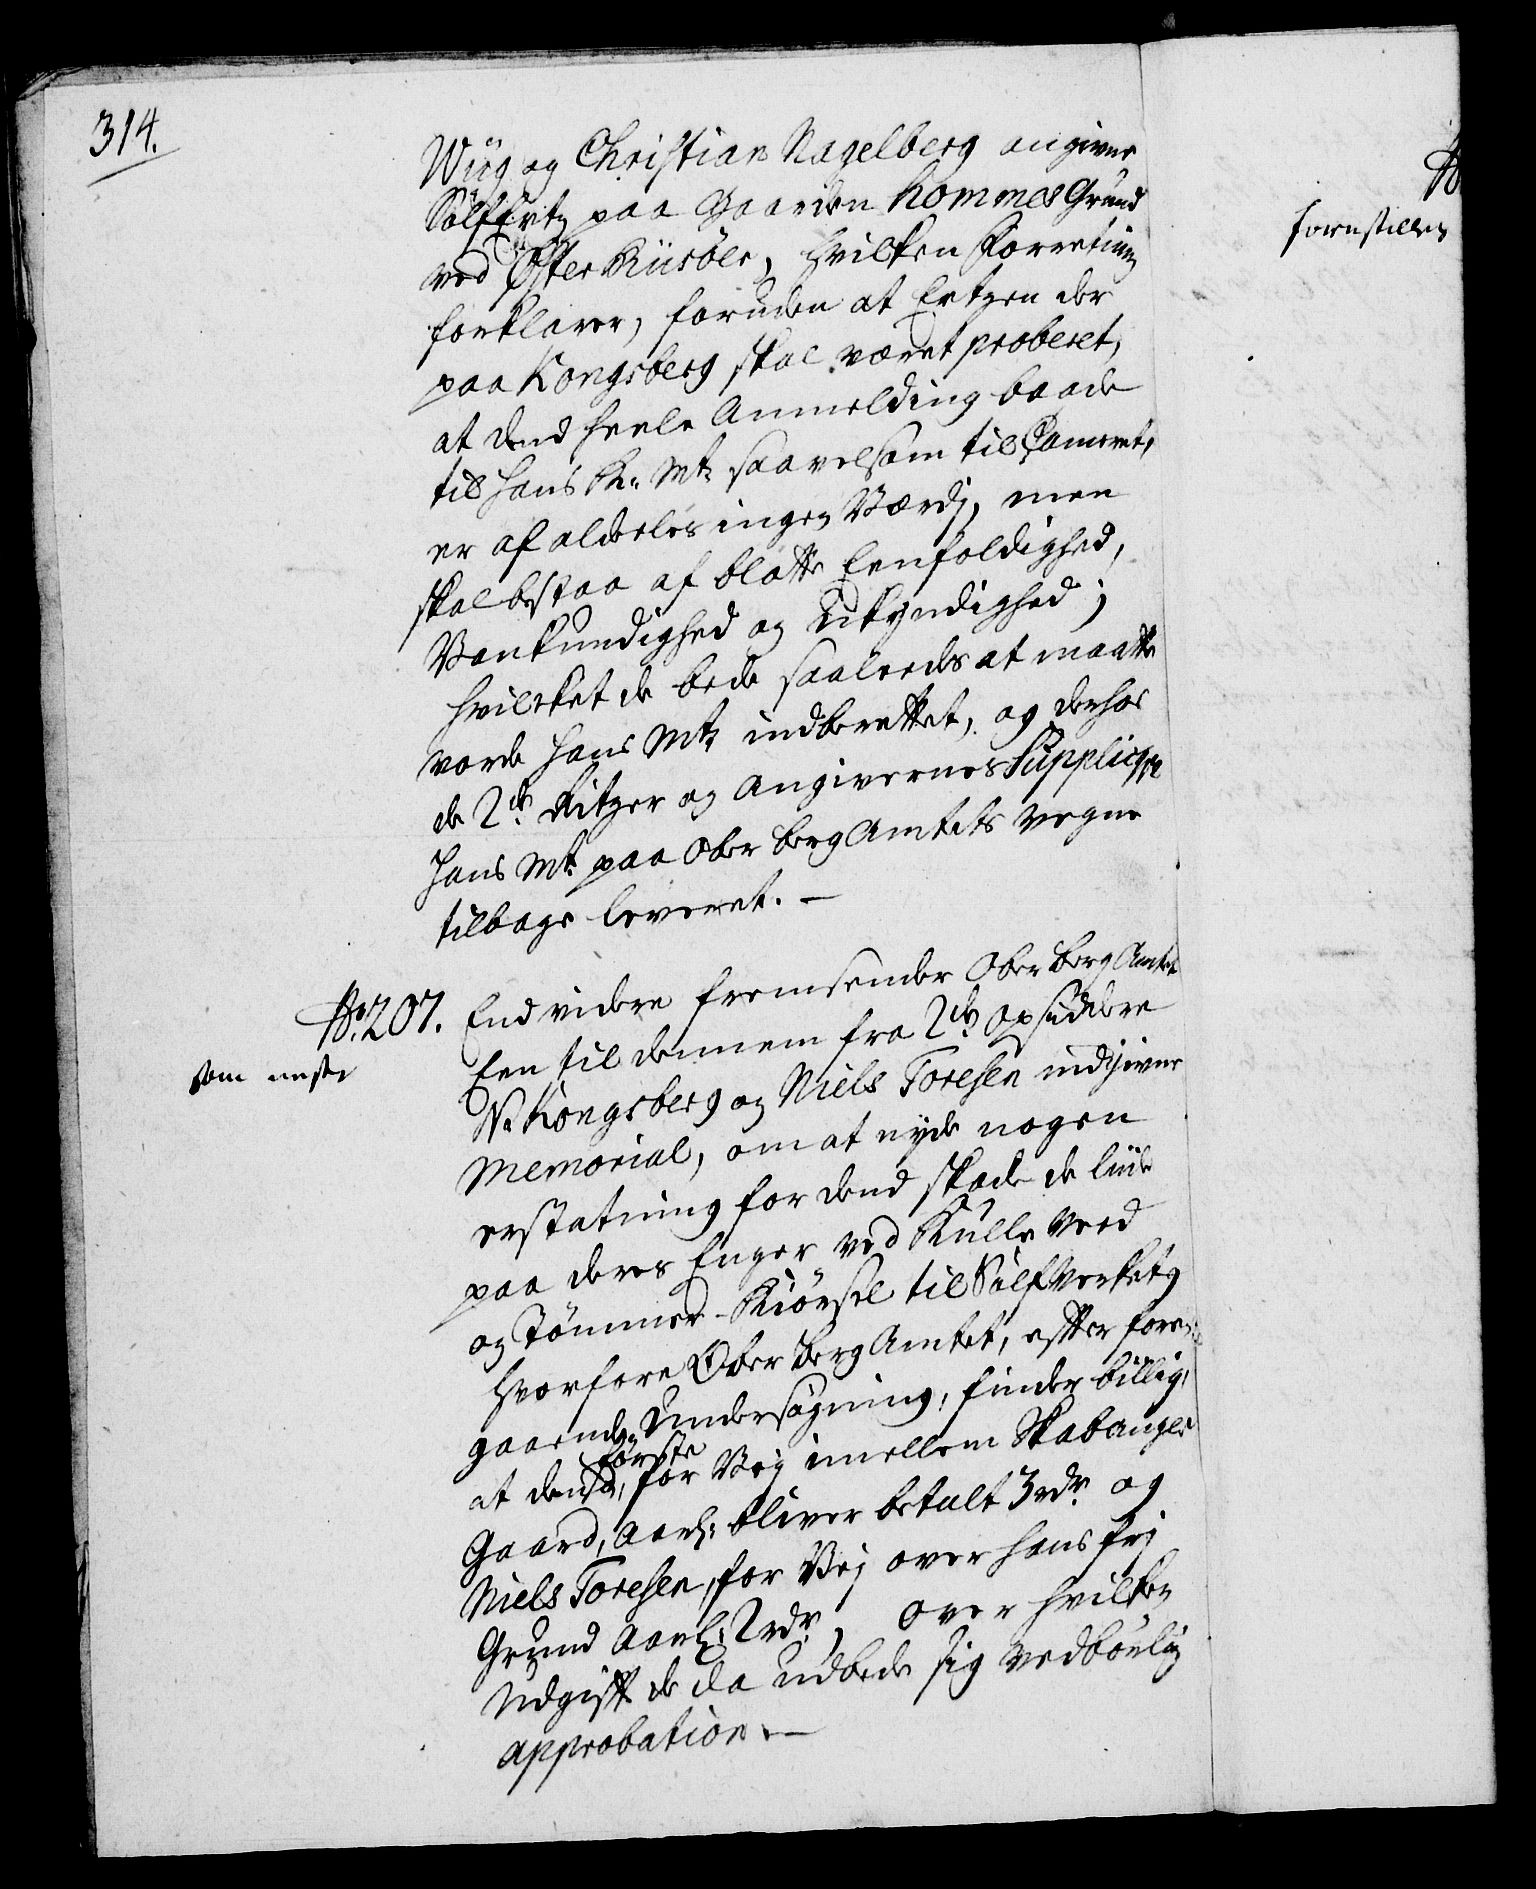 314.
Wiig og Christian Nagelberg angivne
SölfErtz paa Gaarden Hommes Grund
ved Öster Riisöer, hvilken Forretning
forklarer, foruden at Ertzen der
paa Kongsberg skal været proberet,
at dend heele Anmelding baade
til Hans K. Mt. saavelsom til Cameret,
er af aldeeles ingen Værdj, men
skal bestaa af blotte Eenfoldighed,
Vankundighed og Ukyndighed;
hvilcket de bede saaleedes at maatte
vorde Hans Mt. indberettet, og derhos
de 2de Ritzer og Angivernes Suppliqve
Hans Mt. paa Ober Berg Amtets Vegne
tilbage leveret. —
No. 207.
som neste
End videre fremsender Ober Berg Amtet
Een til dennem fra 2de Opsiddere
N. Kongsberg og Niels Toresen indgiven
Memorial, om at nyde nogen
erstatning for dend skade de liide
paa deres Enger ved Kulle Veed
og Tömmer-Kiörsel til Sölf Verket;
hvorfore Ober Berg Amtet, efter fore-
gaaende Undersögning, finder billig,
at dend förste, for Vej imellem Skabanger
Gaard, aarl: bliver betalt 3 rdr. og
Niels Toresen, for Vej over hans frj
Grund aarl: 2 rdr., over hvilken
Udgift de da udbede sig vedbörlig
approbation. —
forestilles